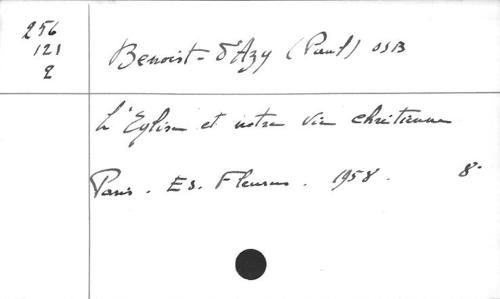 256
121
2
Benoist-d'Azy (Paul) OSB
L'Eglise et notre vie chrétienne
Paris. Ed. Fleurus. 1958. 8°